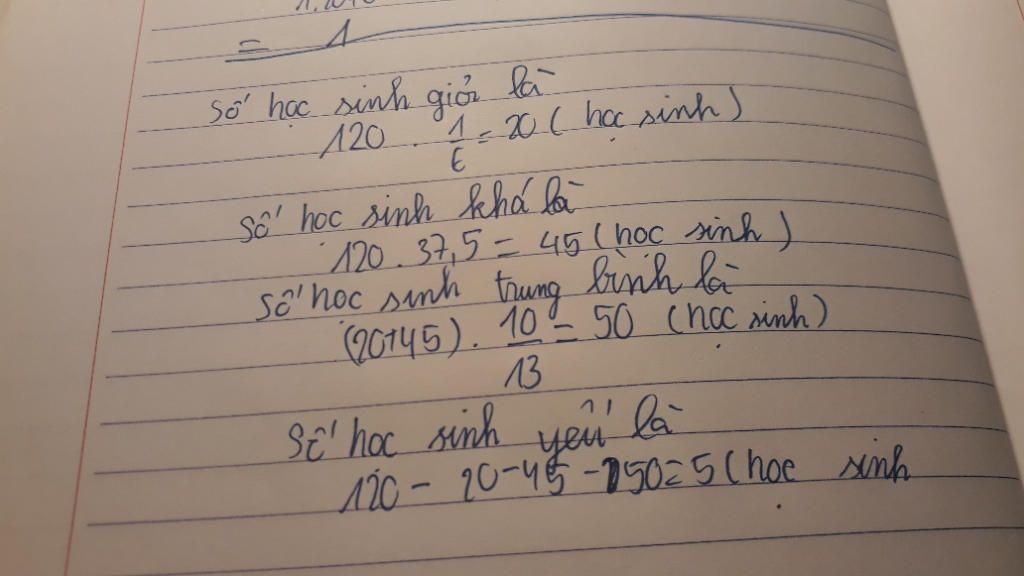 = 1
Số học sinh giỏi là
120 . 1/6 = 20 ( học sinh )
Số học sinh khá là
120 . 37,5 = 45 ( học sinh )
Số học sinh trung bình là
(20+45) . 10/13 = 50 ( học sinh )
Số học sinh yếu là
120 - 20 - 45 - 50 = 5 ( học sinh